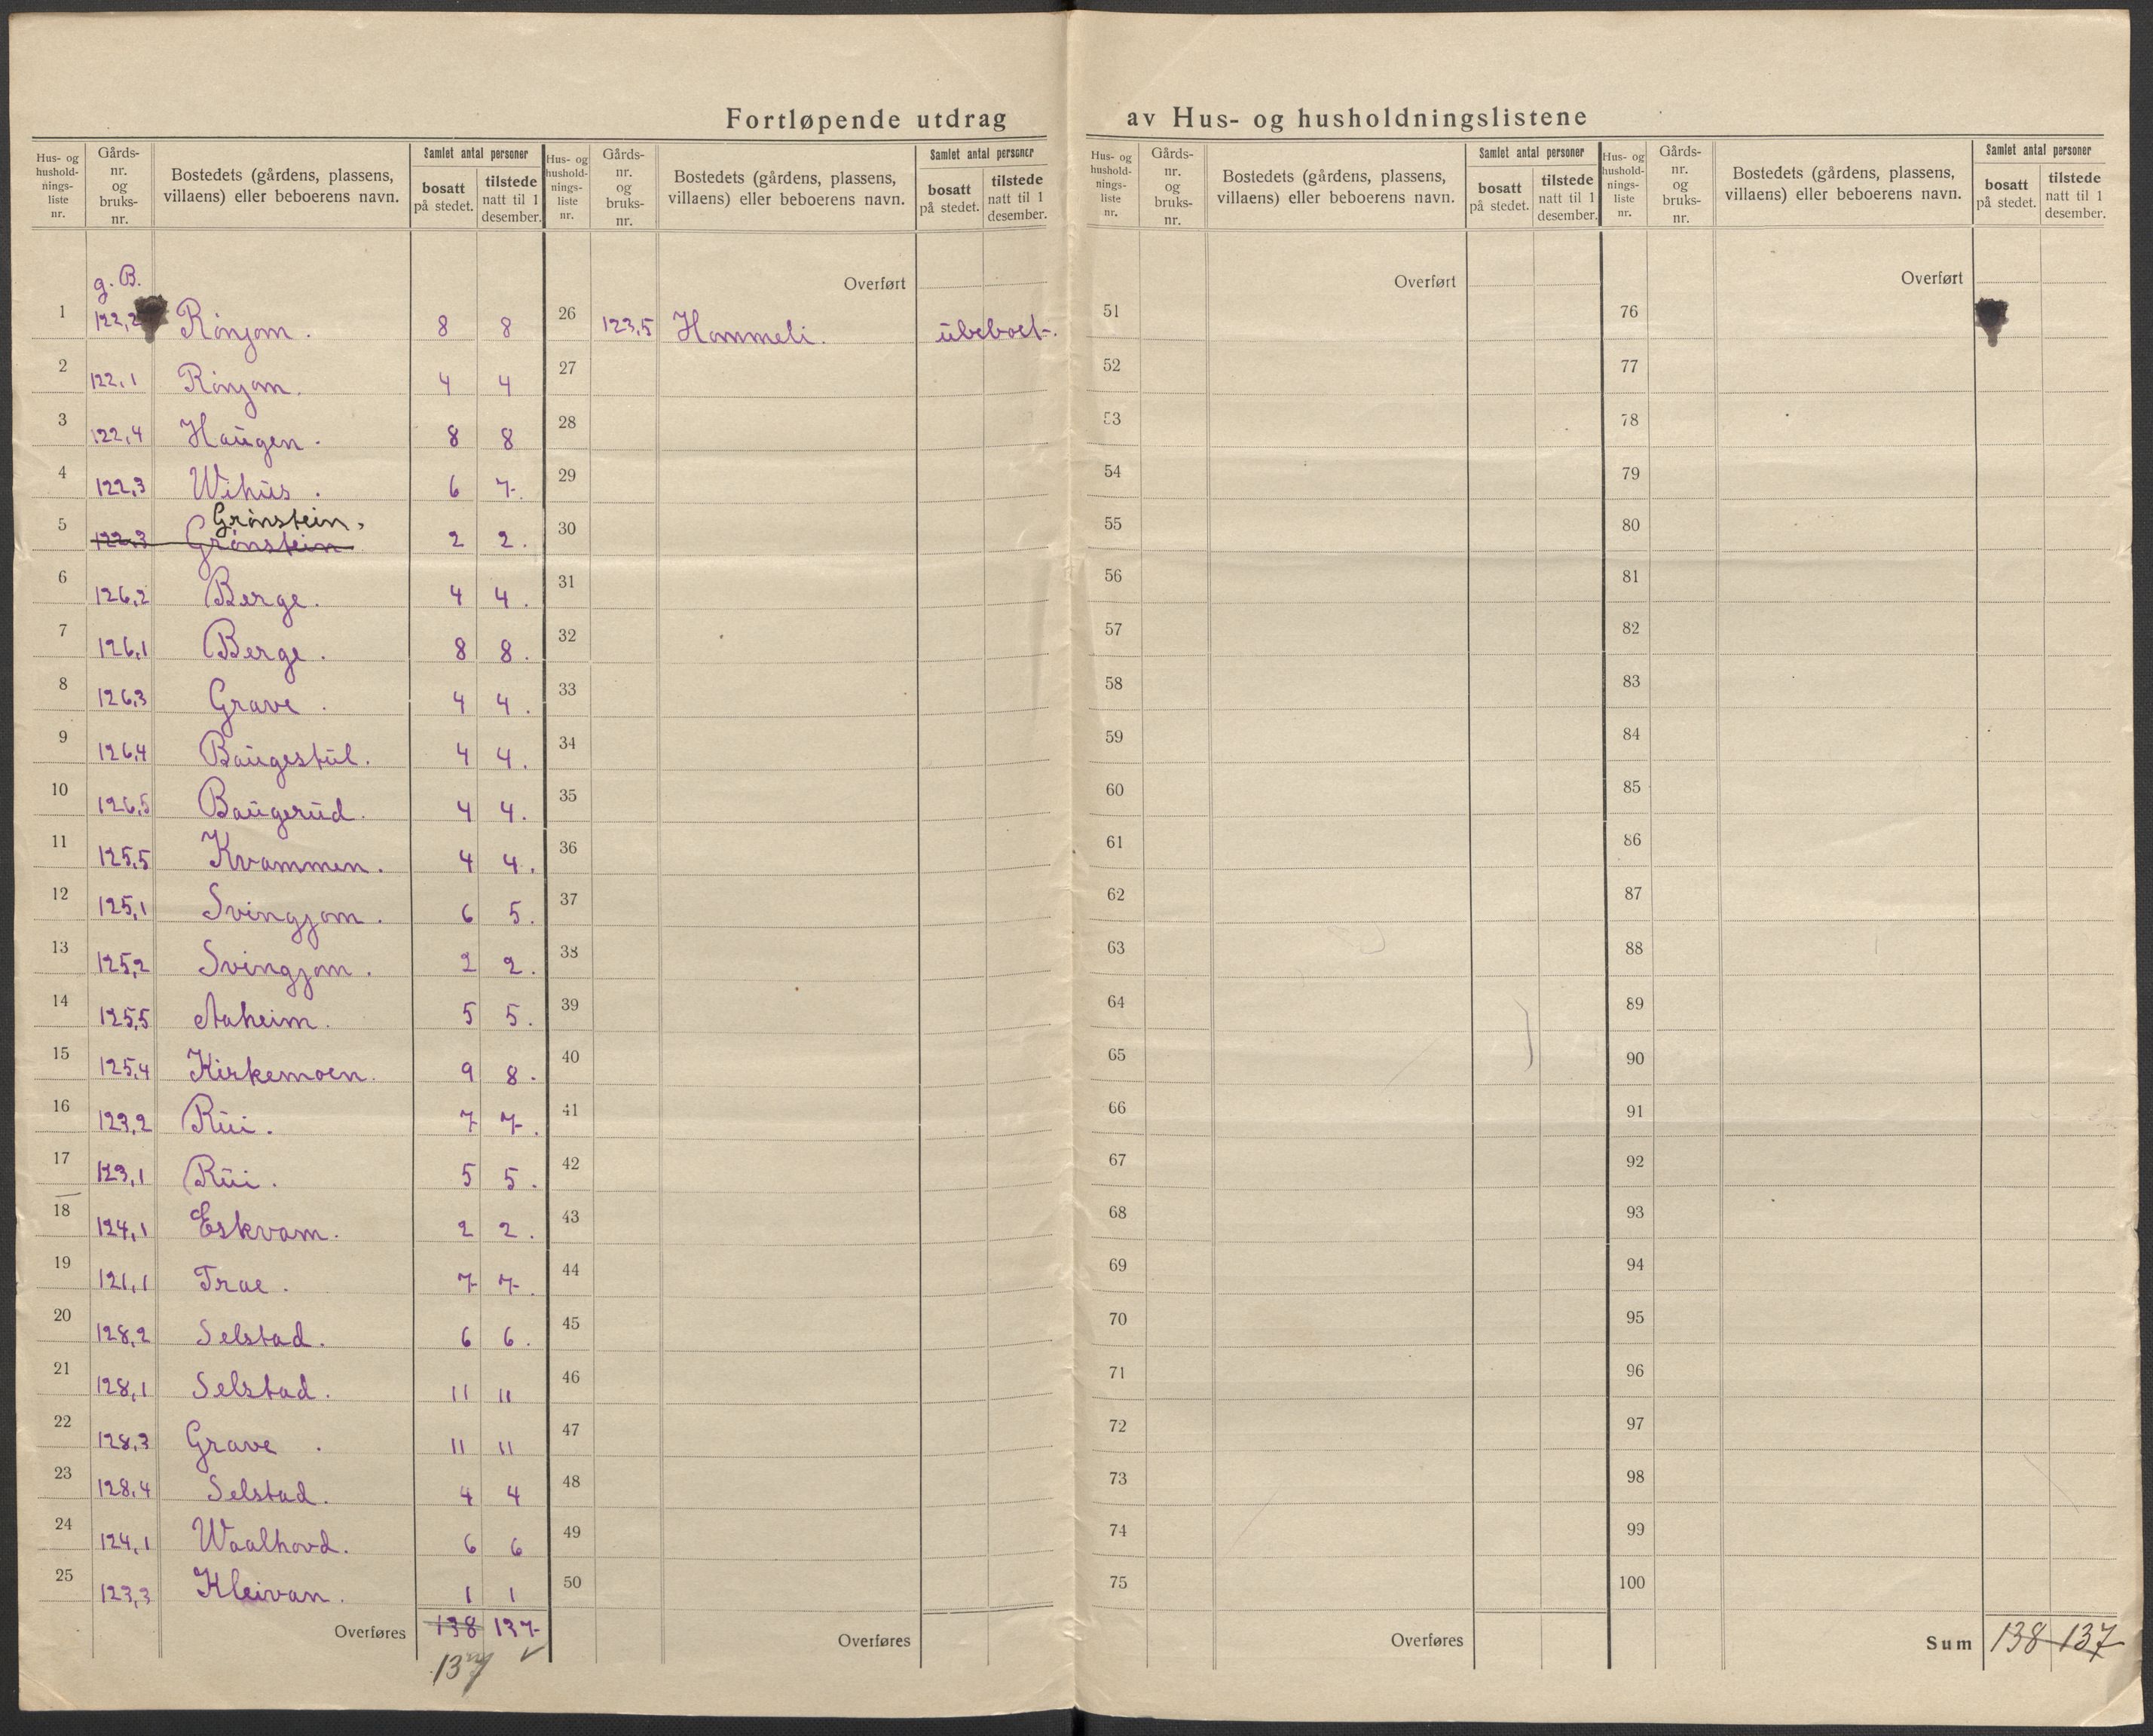 Fortløpende utdrag av Hus- og husholdningslistene
Hus- og hushold-nings-liste nr. Gårds-nr. og bruks-nr. Bostedets (gårdens, plassens, villaens) eller beboerens navn. Samlet antal personer bosatt på stedet. tilstede natt til 1 desember.
g. B.
1 122,2 Rönjom. 8 8
2 122,1 Rönjom. 4 4
3 122,4 Haugen. 8 8
4 122,3 Wihus. 6 7.
Grönstein,
5 122,3 Grönstein 2 2.
6 126,2 Berge. 4 4.
7 126,1 Berge. 8 8.
8 126,3 Grave. 4 4.
9 126,4 Baugestul. 4 4.
10 126,5 Baugerud. 4 4.
11 125,5 Kvammen. 4 4.
12 125,1 Svingjom. 6 5.
13 125,2 Svingjom. 2 2.
14 125,5 Aaheim. 5 5.
15 125,4 Kirkemoen. 9 8.
16 123,2 Rui. 7 7.
17 123,1 Rui. 5 5.
18 124,1 Eskvam. 2 2.
19 121,1 Trae. 7 7.
20 128,2 Selstad. 6 6.
21 128,1 Selstad. 11 11
22 128,3 Grave. 11 11
23 128,4 Selstad. 4 4
24 124,1 Waalhovd. 6 6
25 123,3 Kleivan. 1 1
Overføres 138 137
137
Hus- og hushold-nings-liste nr. Gårds-nr. og bruks-nr. Bostedets (gårdens, plassens, villaens) eller beboerens navn. Samlet antal personer bosatt på stedet. tilstede natt til 1 desember.
Overført
26 123,5 Hommeli. ubeboet.
27
28
29
30
31
32
33
34
35
36
37
38
39
40
41
42
43
44
45
46
47
48
49
50
Overføres
Hus- og hushold-nings-liste nr. Gårds-nr. og bruks-nr. Bostedets (gårdens, plassens, villaens) eller beboerens navn. Samlet antal personer bosatt på stedet. tilstede natt til 1 desember.
Overført
51
52
53
54
55
56
57
58
59
60
61
62
63
64
65
66
67
68
69
70
71
72
73
74
75
Overføres
Hus- og hushold-nings-liste nr. Gårds-nr. og bruks-nr. Bostedets (gårdens, plassens, villaens) eller beboerens navn. Samlet antal personer bosatt på stedet. tilstede natt til 1 desember.
Overført
76
77
78
79
80
81
82
83
84
85
86
87
88
89
90
91
92
93
94
95
96
97
98
99
100
Sum 138 137